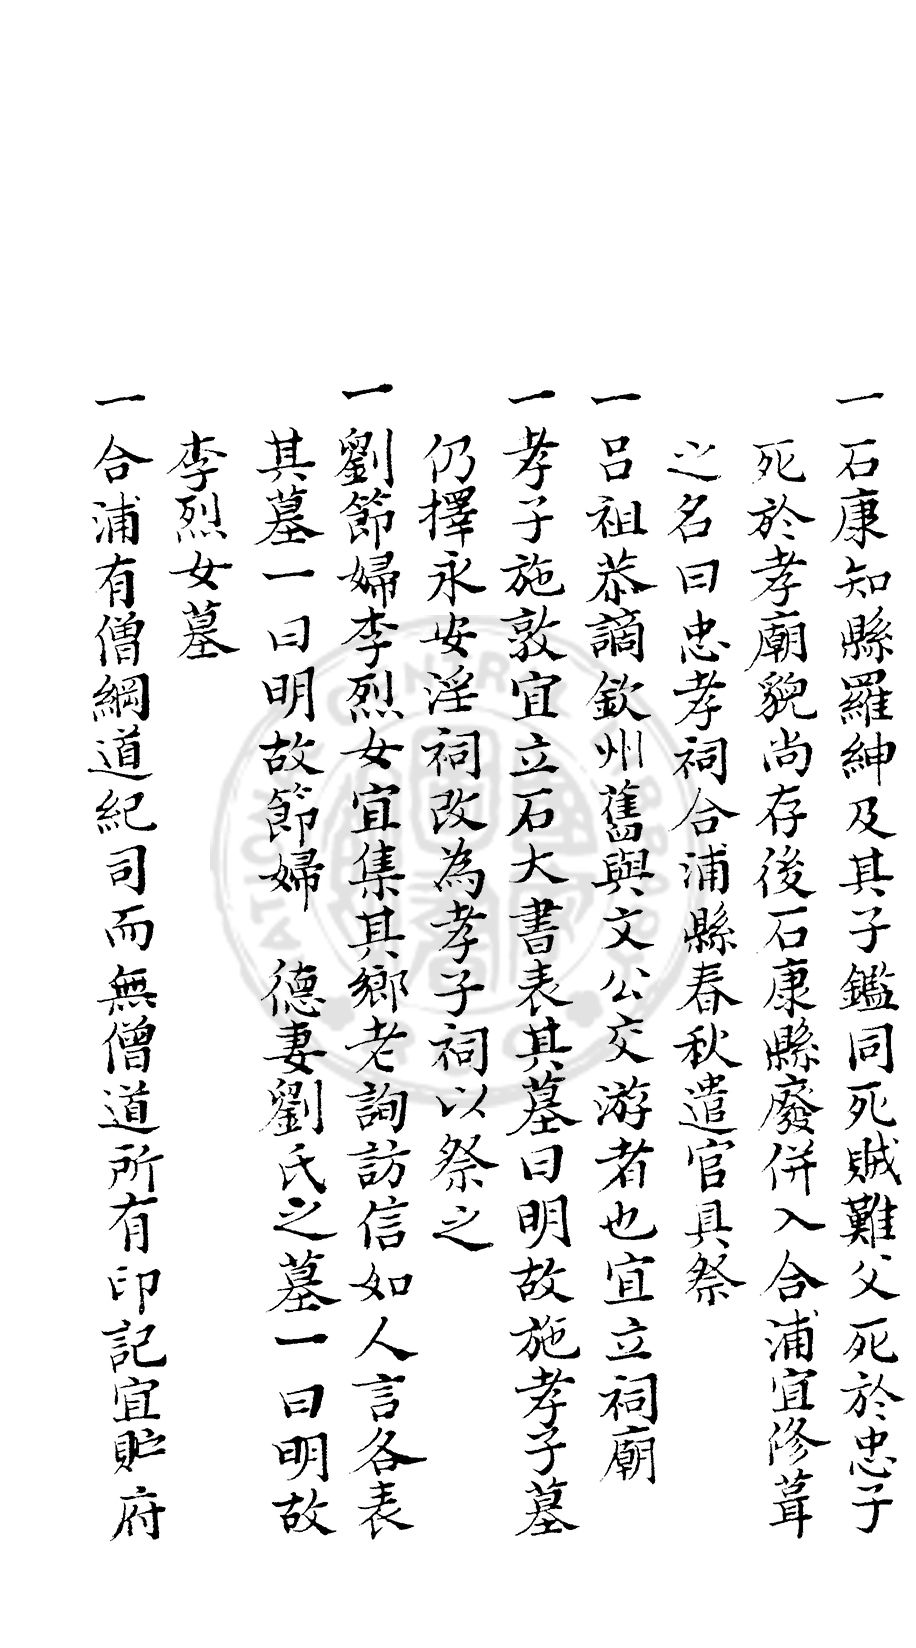 一石康知縣羅紳及其子鑑同死賊難父死於忠子
死於孝廟貌尚存後石康縣廢併入合浦宜修葺
之名曰忠孝祠合浦縣春秋遣官具祭
一呂祖恭謫欽州舊與文公交游者也宜立祠廟
一孝子施敦宜立石大書表其墓曰明故施孝子墓
仍擇永安淫祠改為孝子祠以祭之
一劉節婦李烈女宜集其鄉老詢訪信如人言各表
其墓一曰明故節婦　德妻劉氏之墓一曰明故
李烈女墓
一合浦有僧綱道紀司而無僧道所有印記宜貯府